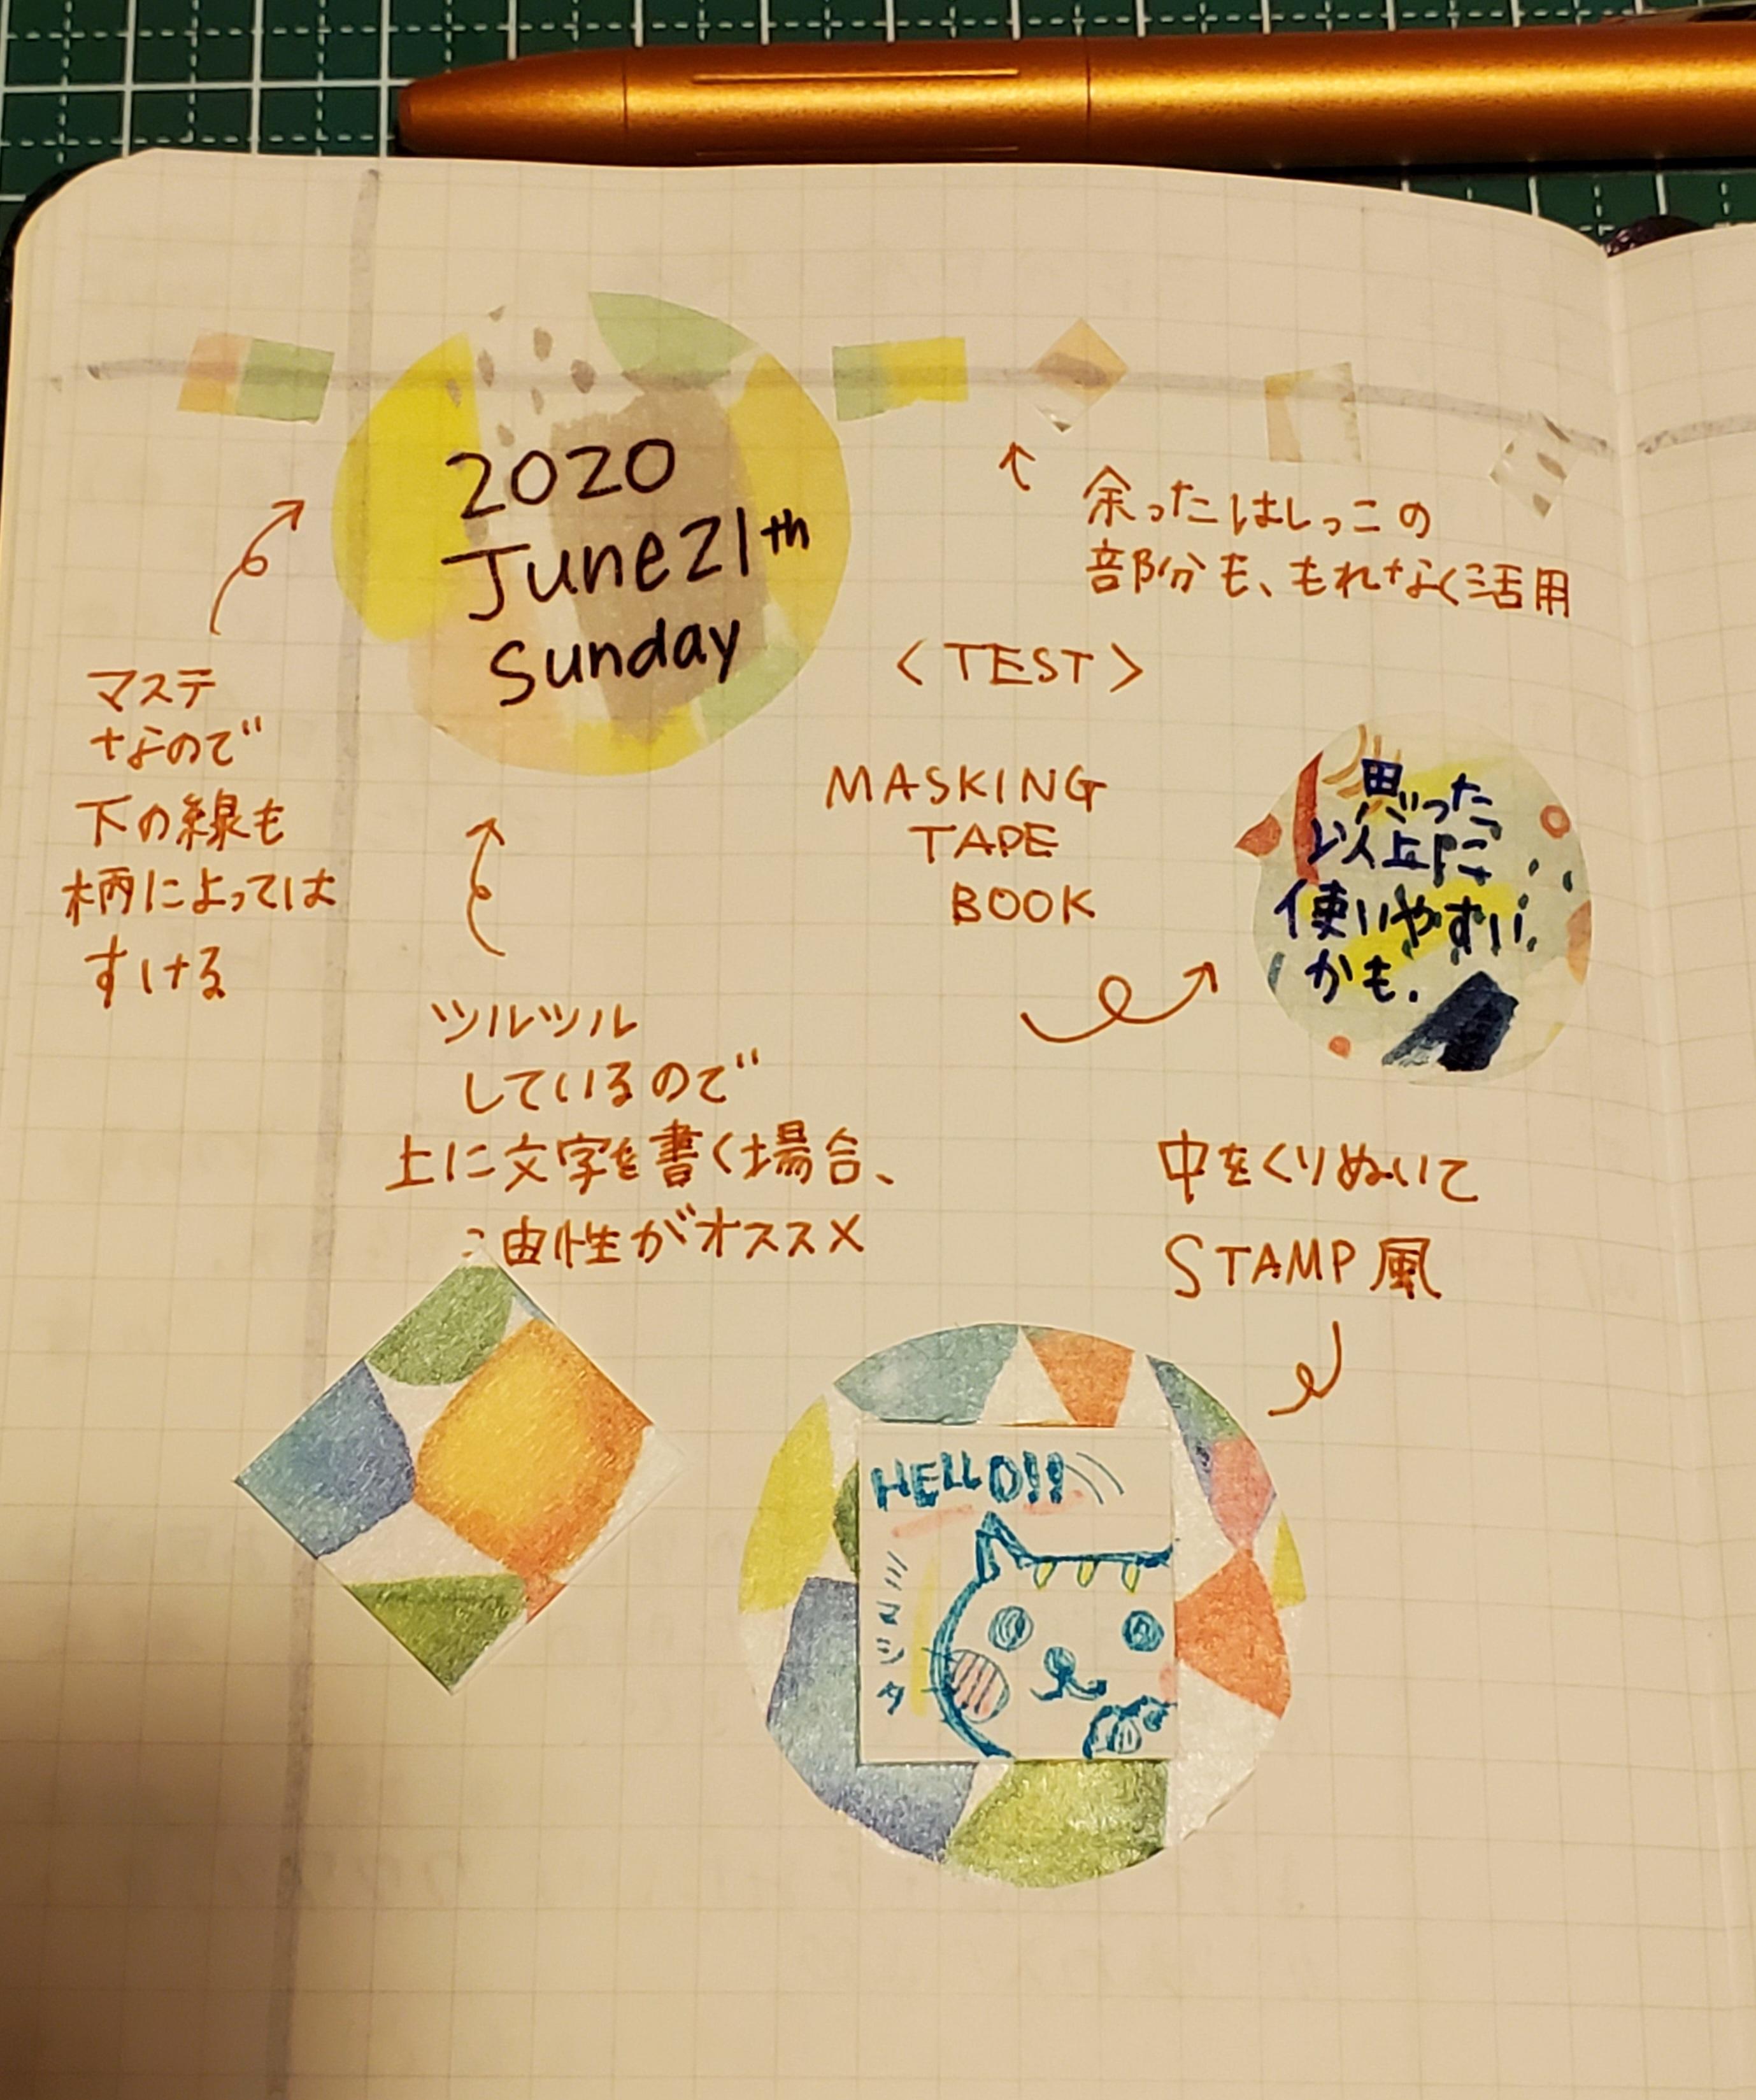 2020
June 21th
Sunday
余ったはしっこの
部分も、もれなく活用
<TEST>
MASKING
TAPE
BOOK
マステ
なので
下の線も
柄によっては
すける
思った
以上に
使いやすい
かも.
ツルツル
しているので
上に文字を書く場合、
油性がオススメ
中をくりぬいて
STAMP風
HELLO!!